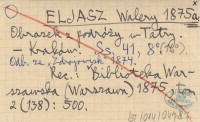 ELJASZ Walery 1875a
Obrazek z podróży w Tatry.
– Kraków. Ss. 41, 8°
Odb. ze: Zdrojowisk 1874.
Rec.: Biblioteka War-
szawska (Warszawa) 1875, tom
2 (138): 500.